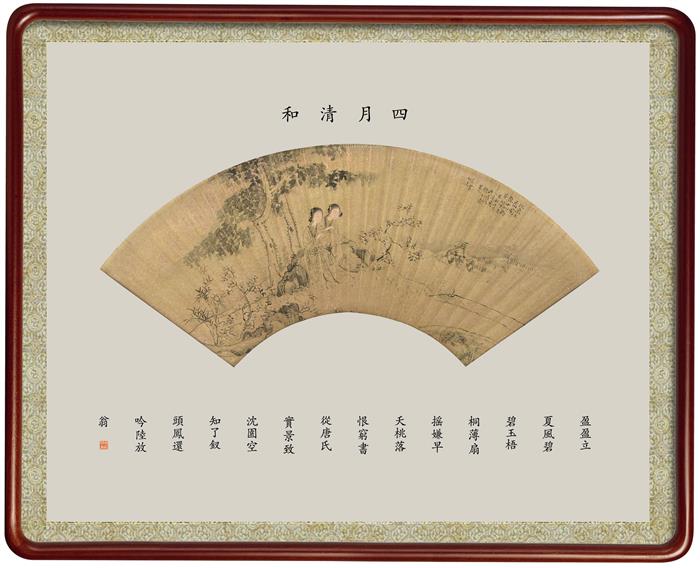 四月清和
盈盈立
夏風碧
碧玉梧
桐薄扇
搖嫌早
夭桃落
恨窮書
從唐氏
實景致
沈園空
知了釵
頭鳳還
吟陸放
翁